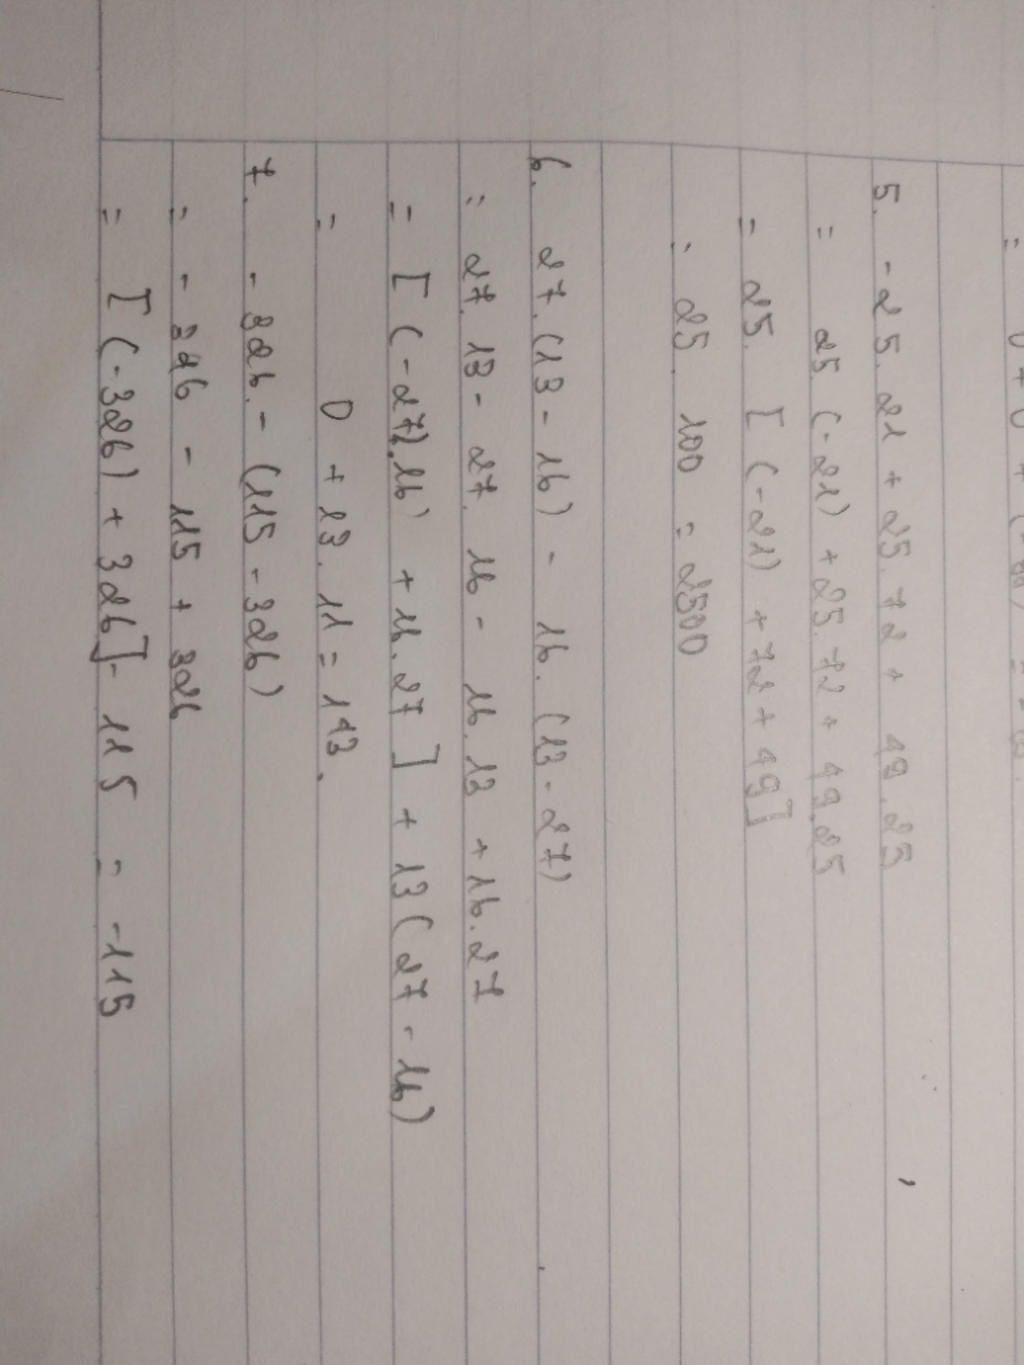 5. -25.21 + 25.72 + 49.25
= 25.(-21) + 25.72 + 49.25
= 25. [(-21) + 72 + 49]
= 25. 100 = 2500
6. 27.(13-16) - 16.(13-27)
= 27.13 - 27.16 - 16.13 + 16.27
= [(-27).16) + 16.27] + 13(27-16)
= 0 + 13.11 = 143.
7. -326 - (115 - 326)
= -326 - 115 + 326
= [(-326) + 326] - 115 = -115